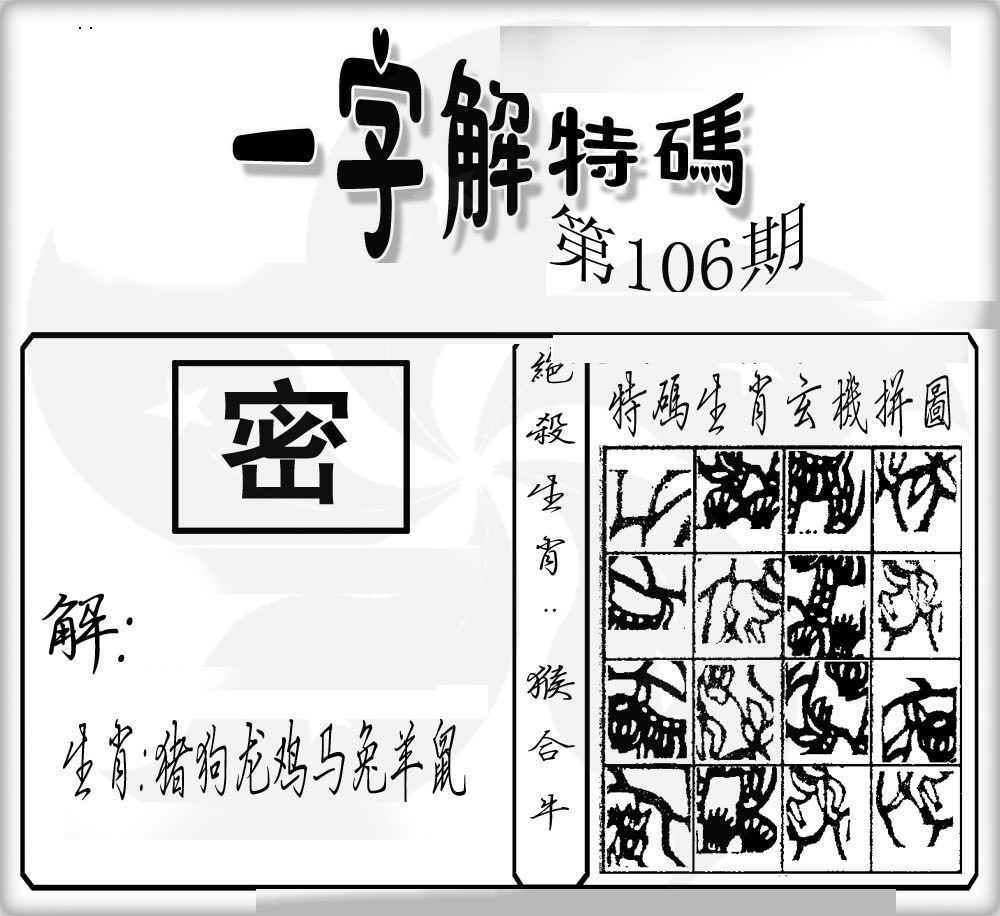 一字解特碼
第106期
密
解：
生肖:猪狗龙鸡马兔羊鼠
絶殺生肖：猴合牛
特碼生肖玄機拼圖